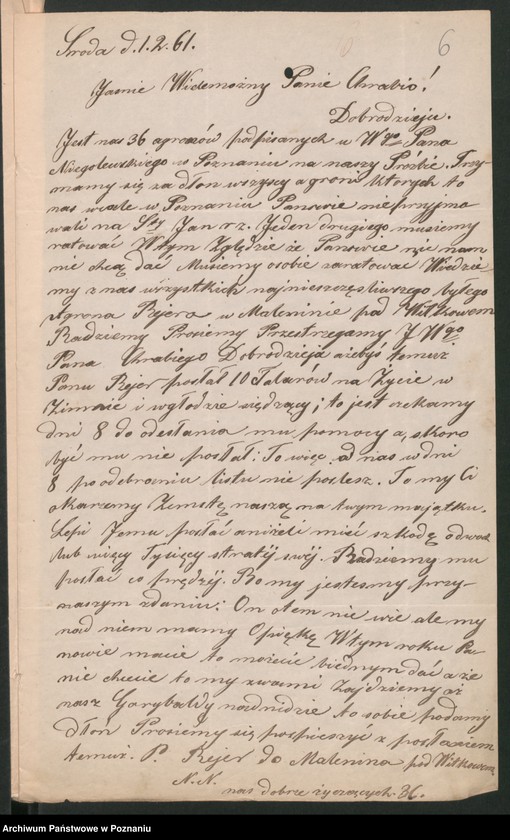 6
Sroda d. 1. 2. 61.
Jasnie Wielemożny Panie Chrabio!
Dobrodzieju.
Jest nas 36 agronów podpisanych u Wgo Pana
Niegolewskiego w Poznaniu na naszy Proźbie. Trzy
mamy się za dłon wszyscy agroni których to
nas wcale w Poznaniu Panowie nieprzyjmo
wali na Sty Jan r z. Jeden drugiego musiemy
ratować Wtym Zględzie że Panowie nic nam
nie chcą dać Musiemy osobie zaratować Wiedzie
my z nas wszystkich najnieszczęsliwszego byłego
Agrona Rejera w Maleninie pod Witkowem
Radziemy Prosiemy Przestrzegamy J Wgo
Pana Chrabiego Dobrodzieja ażebyś temuż
Panu Rejer posłał 10 Talarów na Życie w
Zimnie i wgłodzie siędzący; to jest czekamy
dni 8 do odesłania mu pomocy a, skoro
być mu nie posłał: To więc od nas w dni
8 po odebraniu listu nie poslesz. To my Ci
okarzemy Zemstę naszą na twym majątku.
Lepi Jemu posłać aniżeli mić szkodę odwoch
lub więcy Tysięcy stratij swij. Radziemy mu
posłać co prędzij. Bo my jestesmy przy
naszym zdaniu: On otem nie wie ale my
nad niem mamy Opiękę Wtym roku Pa
nowie macie to możecie biednym dać a że
nie chcecie to my zwami Zajdziemy aż
nasz Garybaldy nadnidzie to sobie podamy
dłoń Prosiemy się pospieszyć z posłaniem
temuż. P. Rejer do Malenina pod Witkowem
N. N.
nas dobrze życzących. 36.
Archiwum Państwowe w Poznaniu